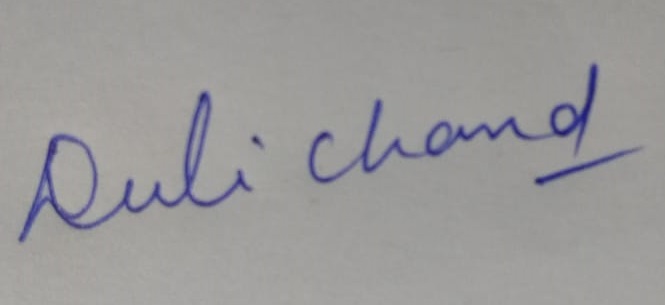 Duli chand